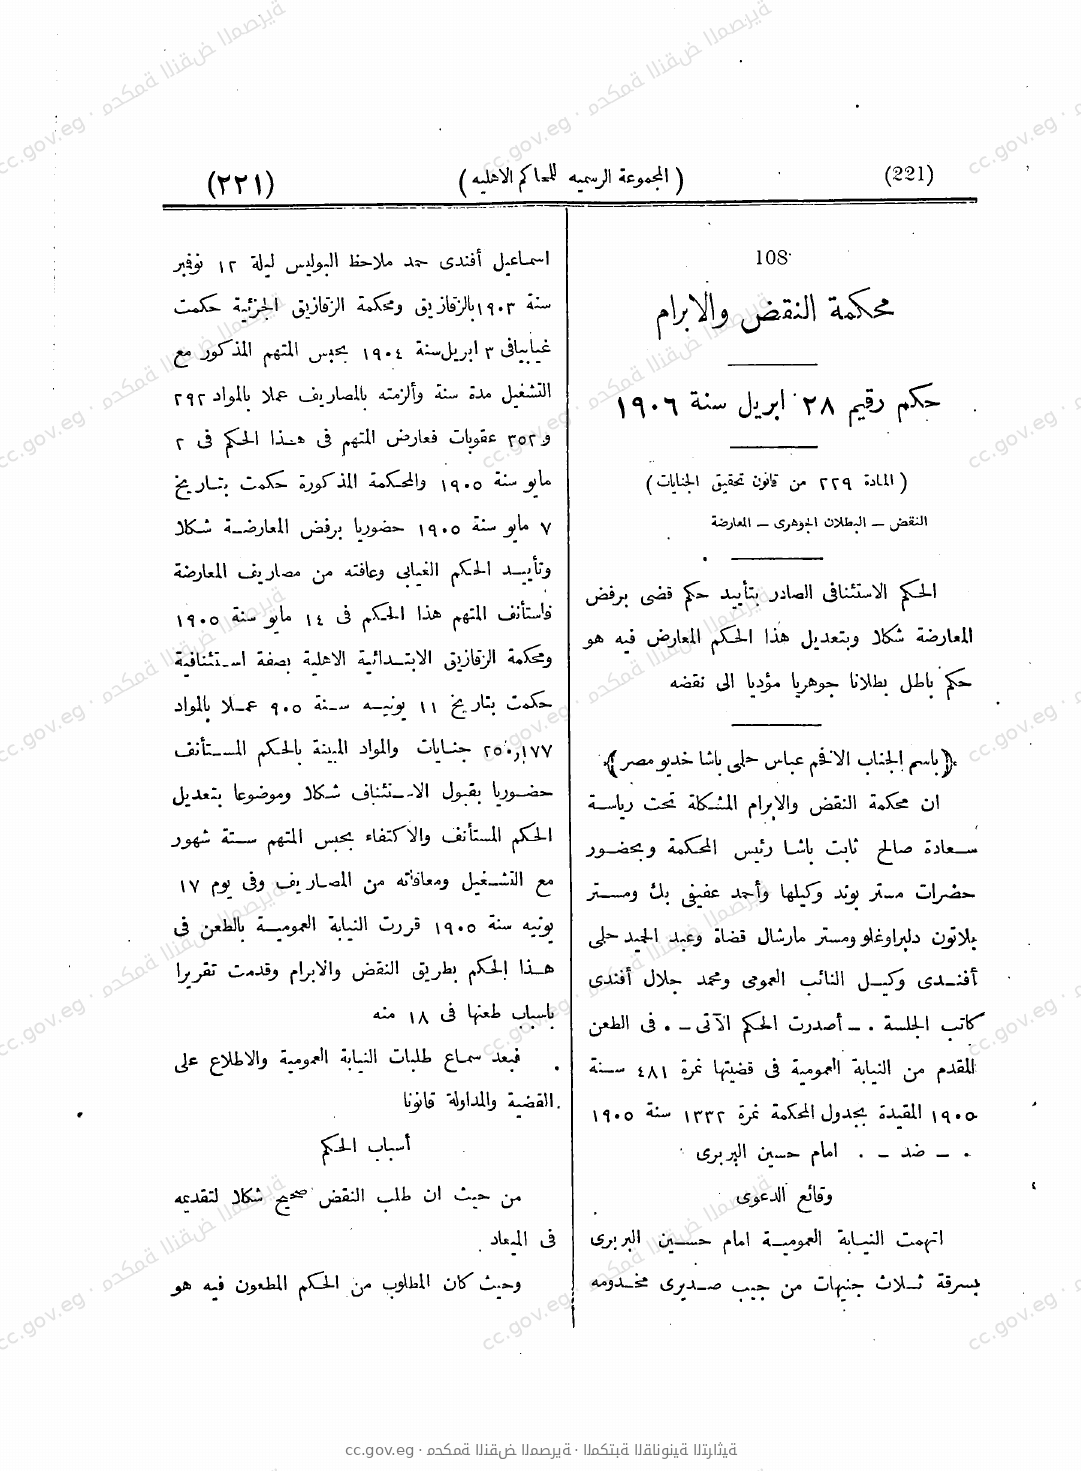 (221)
( المجموعة الرسميه للمحاكم الاهليه )
(٢٢١)
108
محكمة النقض والابرام
حكم رقيم ٢٨ ابريل سنة ١٩٠٦
( المادة ٢٢٩ من قانون تحقيق الجنايات )
النقض – البطلان الجوهرى – المعارضة
الحكم الاستئنافى الصادر بتأييد حكم قضى برفض
المعارضة شكلا وبتعديل هذا الحكم المعارض فيه هو
حكم باطل بطلانا جوهريا مؤديا الى نقضه
﴿ باسم الجناب الافخم عباس حلمى باشا خديو مصر ﴾
ان محكمة النقض والابرام المشكلة تحت رياسة
سعادة صالح ثابت باشا رئيس المحكمة وبحضور
حضرات مستر بوند وكيلها وأحمد عفيفى بك ومستر
يلاتون دلبراوغلو ومستر مارشال قضاة وعبد المجيد حلمى
أفندى وكيل النائب العمومى ومحمد جلال أفندى
كاتب الجلسة . – أصدرت الحكم الآتى – . فى الطعن
المقدم من النيابة العمومية فى قضيتها نمرة ٤٨١ سنة
١٩٠٥ المقيدة بجدول المحكمة نمرة ١٣٣٢ سنة ١٩٠٥
. – ضد – . امام حسين البربرى
وقائع الدعوى
اتهمت النيابة العمومية امام حسين البربرى
بسرقة ثلاث جنيهات من جيب صديرى مخدومه
اسماعيل أفندى حمد ملاحظ البوليس ليلة ١٢ نوفمبر
سنة ١٩٠٣ بالزقازيق ومحكمة الزقازيق الجزئية حكمت
غيابيا فى ٣ ابريل سنة ١٩٠٤ بحبس المتهم المذكور مع
التشغيل مدة سنة وألزمته بالمصاريف عملا بالمواد ٢٩٢
و ٣٥٢ عقوبات فعارض المتهم فى هذا الحكم فى ٢
مايو سنة ١٩٠٥ والمحكمة المذكورة حكمت بتاريخ
٧ مايو سنة ١٩٠٥ حضوريا برفض المعارضة شكلا
وتأييد الحكم الغيابى وعافته من مصاريف المعارضة
فاستأنف المتهم هذا الحكم فى ١٤ مايو سنة ١٩٠٥
ومحكمة الزقازيق الابتدائية الاهلية بصفة استئنافية
حكمت بتاريخ ١١ يونيه سنة ٩٠٥ عملا بالمواد
٢٥٠,١٧٧ جنايات والمواد المبينة بالحكم المستأنف
حضوريا بقبول الاستئناف شكلا وموضوعا بتعديل
الحكم المستأنف والاكتفاء بحبس المتهم ستة شهور
مع التشغيل ومعافاته من المصاريف وفى يوم ١٧
يونيه سنة ١٩٠٥ قررت النيابة العمومية بالطعن فى
هذا الحكم بطريق النقض والابرام وقدمت تقريرا
باسباب طعنها فى ١٨ منه
فبعد سماع طلبات النيابة العمومية والاطلاع على
القضية والمداولة قانونا
أسباب الحكم
من حيث ان طلب النقض صحيح شكلا لتقديمه
فى الميعاد .
وحيث كان المطلوب من الحكم المطعون فيه هو
cc.gov.eg · محكمة النقض المصرية · المكتبة القانونية التراثية